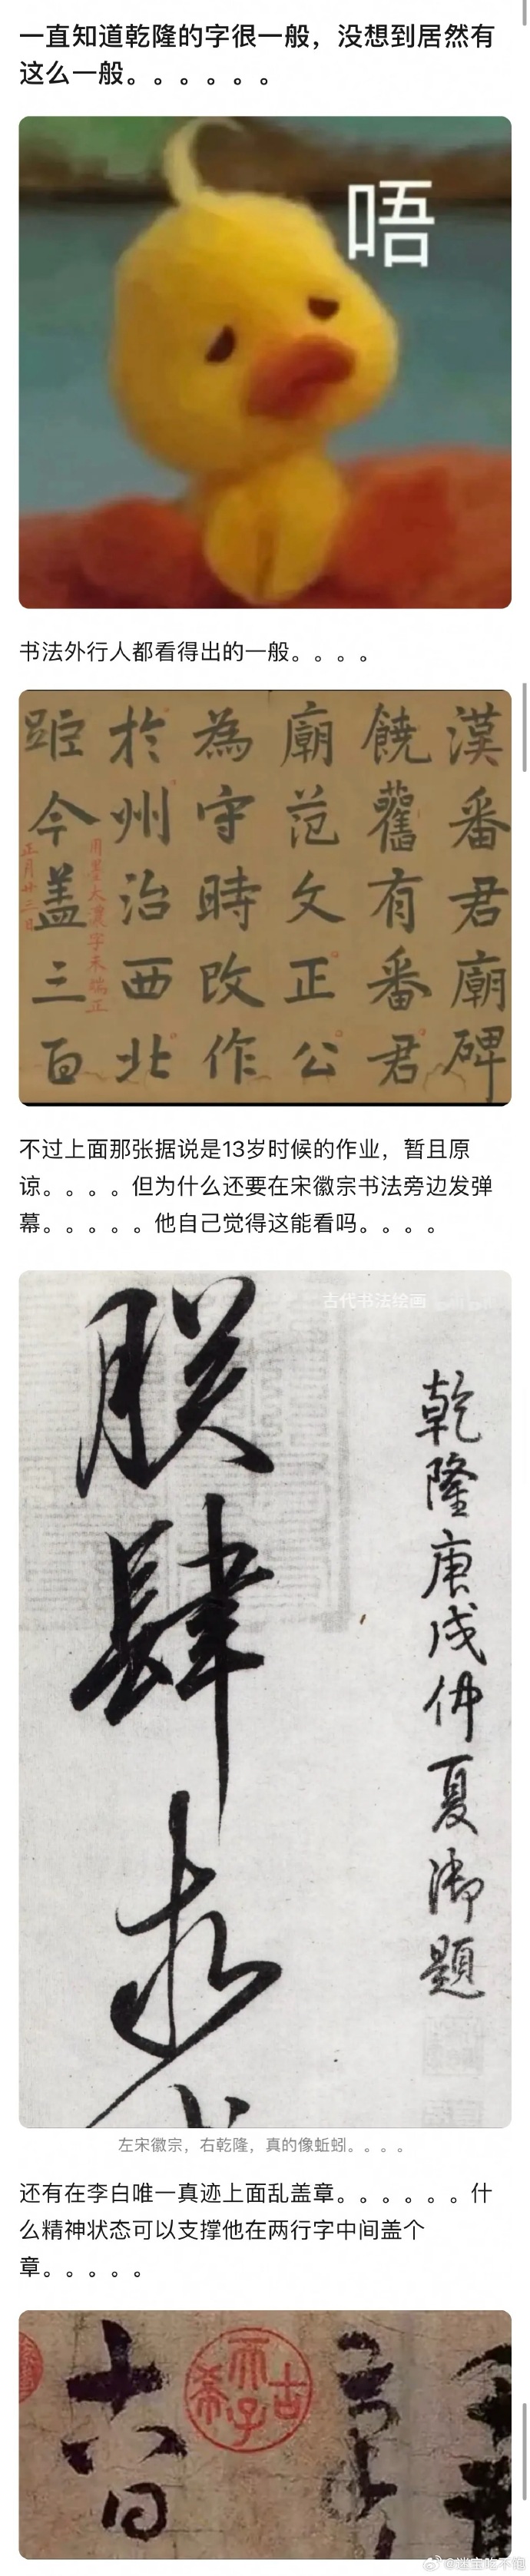 一直知道乾隆的字很一般，没想到居然有
这么一般。。。。。。
唔
书法外行人都看得出的一般。。。。
漢番君廟碑
饒舊有番君
廟范文正公
為守時改作
於州治西北
距今盖三百
用墨太濃字未端正
正月廿三日
不过上面那张据说是13岁时候的作业，暂且原
谅。。。。但为什么还要在宋徽宗书法旁边发弹
幕。。。。。他自己觉得这能看吗。。。。
古代书法绘画
乾隆庚戌仲夏御題
朕肆求
左宋徽宗，右乾隆，真的像蚯蚓。。。。
还有在李白唯一真迹上面乱盖章。。。。。。什
么精神状态可以支撑他在两行字中间盖个
章。。。。。
古希天子
六日
@迷宝吃不饱